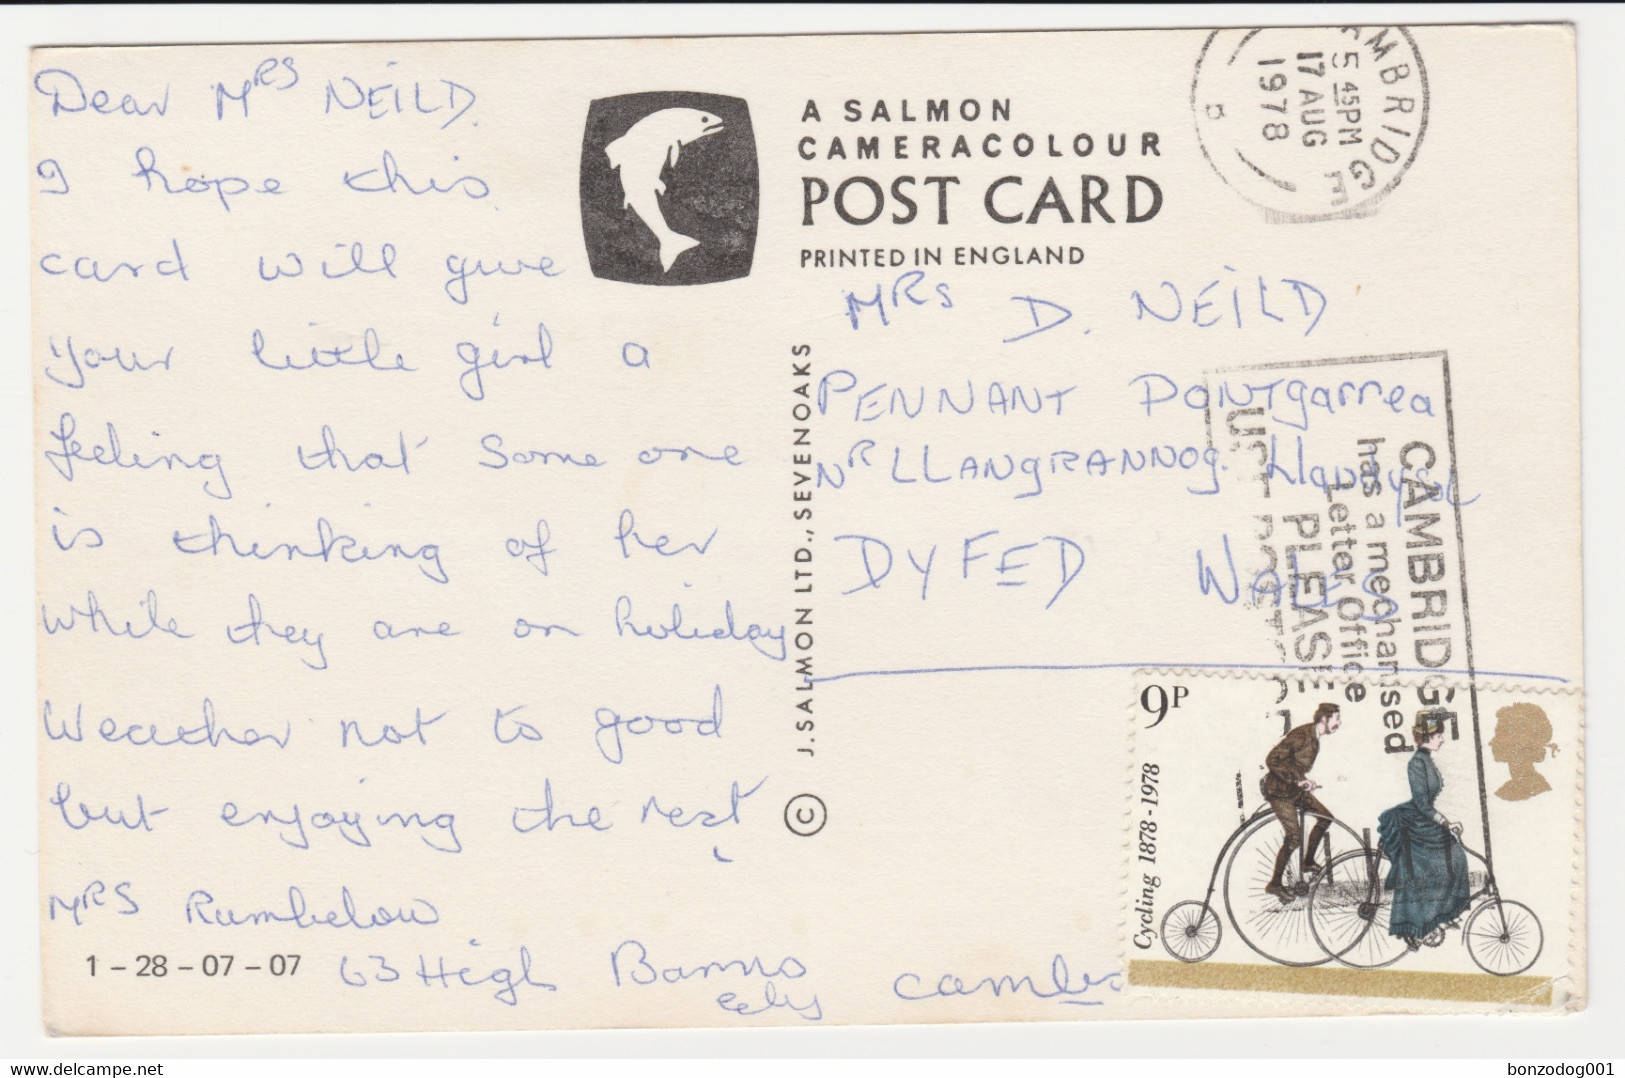 Dear Mrs NEILD.
I hope this
card will give
your little girl a
feeling that some one
is thinking of her
while they are on holiday
Weather not to good
but enjoying the rest
MRS Rumbelow
63 High Barns
Ely
Cambs
1 - 28 - 07 - 07
A SALMON
CAMERACOLOUR
POST CARD
PRINTED IN ENGLAND
© J. SALMON LTD., SEVENOAKS
CAMBRIDGE
5 45PM
17 AUG
1978
B
MRS D. NEILD
PENNANT Pontgarrea
NR LLANGRANNOG.
DYFED WALES
CAMBRIDGE
has a mechanised
Letter Office
PLEASE
9P
Cycling 1878-1978
bonzodog001